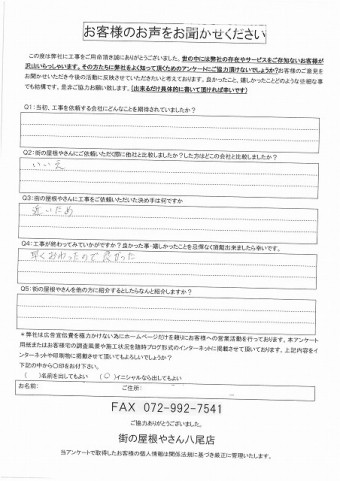 お客様のお声をお聞かせください
この度は弊社に工事をご用命頂き誠にありがとうございました。世の中には弊社の存在やサービスをご存知ないお客様が
沢山いらっしゃいます。その方たちに弊社をよく知って頂くためのアンケートにご協力頂けないでしょうか？お客様のご意見を
お聞かせいただき今後の活動に反映させていただきたいと考えております。良かったこと、嬉しかったことどのような些細な事
でも結構です。是非ご協力お願い致します。(出来るだけ具体的に書いて頂ければ幸いです)
Q1:当初、工事を依頼する会社にどんなことを期待されていましたか？
Q2:街の屋根やさんにご依頼いただく際に他社と比較しましたか？した方はどこの会社と比較しましたか？
いいえ
Q3:街の屋根やさんに工事をご依頼いただいた決め手は何ですか
近いため
Q4:工事が終わってみていかがですか？良かった事・嬉しかったことを忌憚なく頂戴出来ましたら幸いです。
早くおわったので良かった
Q5:街の屋根やさんを他の方に紹介するとしたらなんと紹介しますか？
＊弊社は広告宣伝費を極力かけない為にホームページだけを頼りにお客様への営業活動を行っております。本アンケート
用紙またはお客様宅の調査風景や施工状況を随時ブログ形式のインターネットに掲載させて頂いております。上記内容をイ
ンターネットや印刷物に掲載させて頂いてもよろしいでしょうか？
下記の中から〇印をお付下さい。
(　　)名前を出してもよい　　(〇)イニシャルなら出してもよい
お名前:　　ご住所:
FAX 072-992-7541
ご協力ありがとうございました。
街の屋根やさん八尾店
当アンケートで取得したお客様の個人情報は関係法規に基づき厳正に管理いたします。